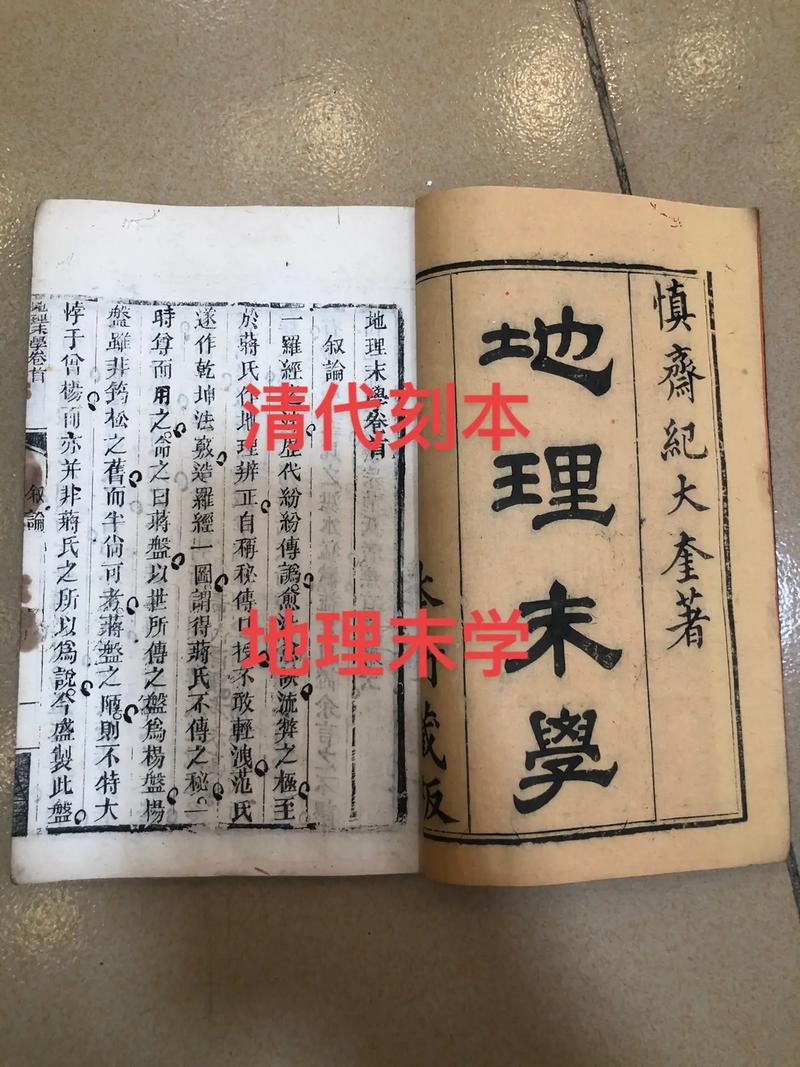 慎齋紀大奎著
地理末學
藏板
地理末學卷首
叙論
一羅經之歷代紛紛傳譌愈流弊之極至
於蔣氏作地理辨正自稱秘傳口授不敢輕洩范氏
遂作乾坤法竅造羅經一圖謂得蔣氏不傳之秘一
時尊而用之命之曰蔣盤以世所傳之盤爲楊盤楊
盤雖非筠松之舊而半尙可考蔣盤之
則不特大
悖于曾楊而亦并非蔣氏之所以爲說今盛製此盤
地理末學卷首
叙論
一
清代刻本
地理末学